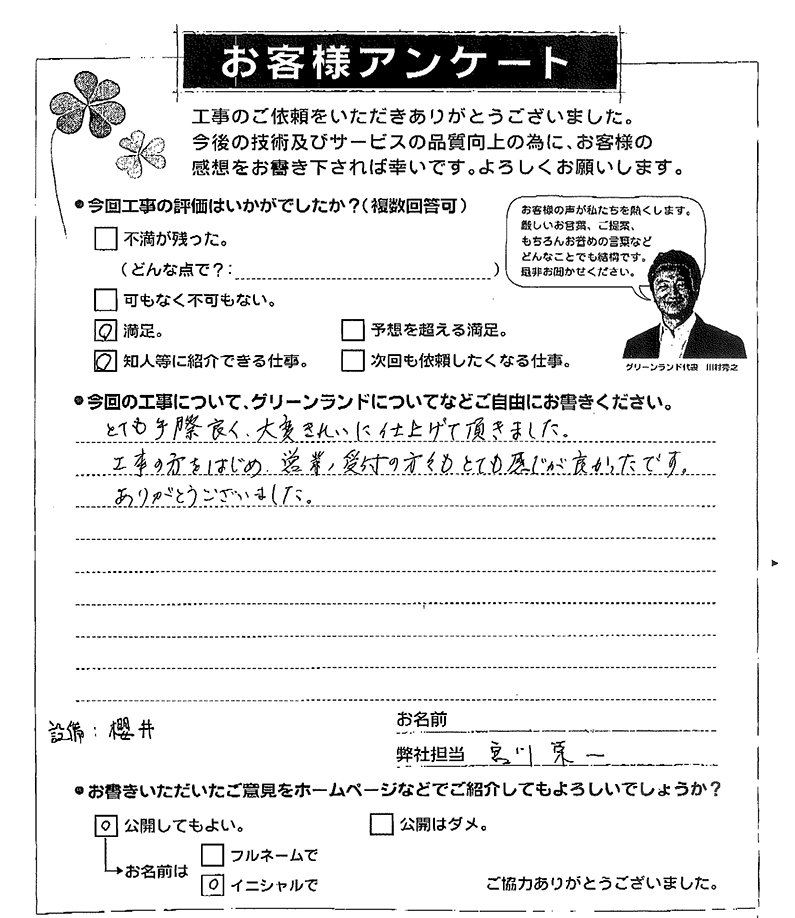 お客様アンケート
工事のご依頼をいただきありがとうございました。
今後の技術及びサービスの品質向上の為に、お客様の
感想をお書き下されば幸いです。よろしくお願いします。
●今回工事の評価はいかがでしたか?(複数回答可)
お客様の声が私たちを熱くします。
厳しいお言葉、ご提案、
もちろんお誉めの言葉など
どんなことでも結構です。
是非お聞かせください。
不満が残った。
(どんな点で?: )
可もなく不可もない。
満足。
予想を超える満足。
知人等に紹介できる仕事。
次回も依頼したくなる仕事。
グリーンランド代表 川村秀之
●今回の工事について、グリーンランドについてなどご自由にお書きください。
とても手際良く、大変きれいに仕上げて頂きました。
工事の方をはじめ、営業、受付の方々もとても感じが良かったです。
ありがとうございました。
設備:櫻井
お名前
弊社担当 宮川 栄一
●お書きいただいたご意見をホームページなどでご紹介してもよろしいでしょうか?
公開してもよい。
公開はダメ。
お名前は
フルネームで
イニシャルで
ご協力ありがとうございました。